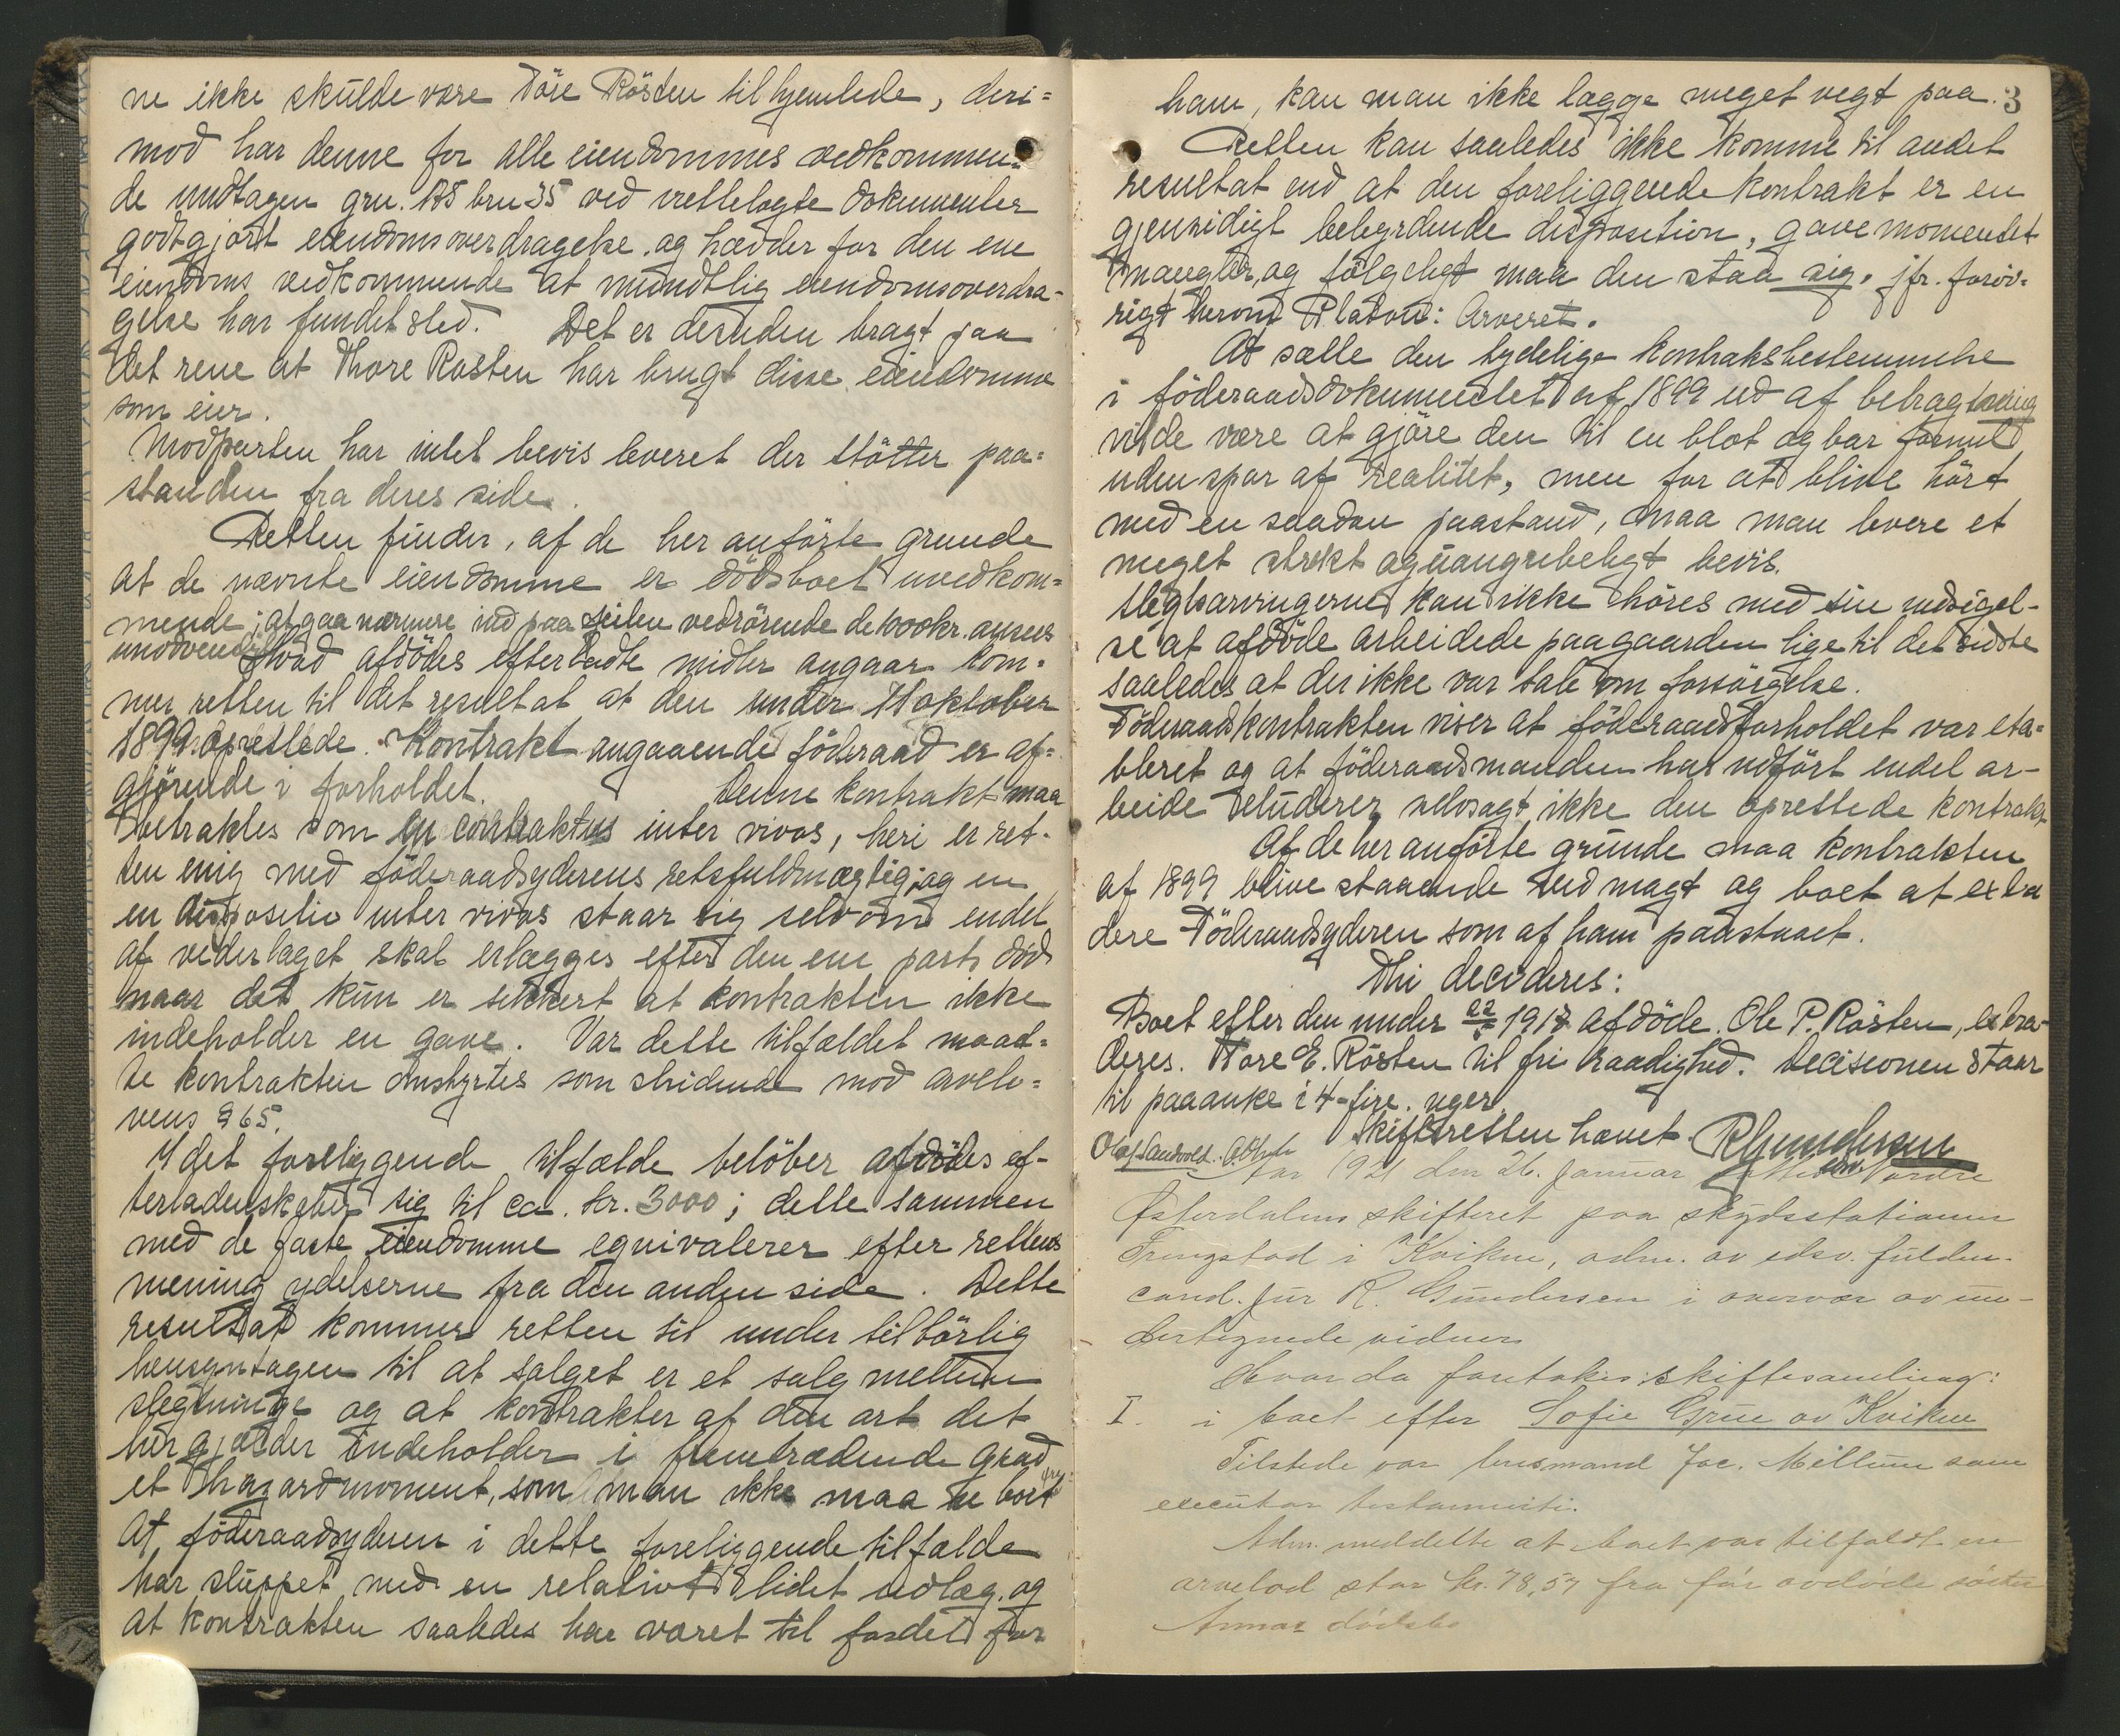 ne ikke skulde være Töre Rösten tilhjemlede, deri=
mod har denne for alle eiendommes vedkommen=
de undtagen gru. 185 bru 35 ved irettelagte dokumenter
godtgjort eiendomsoverdragelse og hævder for den ene
eiendoms vedkommende at mundtlig eiendomsoverdra-
gelse har fundet sted. Det er desuden bragt paa
det rene at Thore Rosten har brugt disse eiendomme
som eier.
Modparten har intet bevis leveret der stötter paa=
standen fra deres side.
Retten finder, af de her anförte grunde
at de nævnte eiendomme er dödsboet uvedkom=
mende; at gaa nærmere ind paa seilen vedrörende de 1000 kr. ansees
unödvendig
Hvad afdödes efterladte midler angaar kom=
mer retten til det resultat at den under 14 oktober
1899 oprettede Kontrakt angaaende föderaad er af=
gjörende i forholdet. Denne kontrakt maa
betraktes som en contraktus inter vivos, heri er ret-
ten enig med föderaadsyderens retsfuldmægtig, og en
en dispositio inter vivos staar sig selv om endel
af vederlaget skal erlægges efter den ene parts död
naar det kun er sikkert at kontrakten ikke
indeholder en gave. Var dette tilfældet maat=
te kontrakten omstyrtes som stridende mod arvelo=
vens § 65.
I det foreliggende tilfælde belöber afdödes ef-
terladenskaber sig til ca. kr. 3000; dette sammen
med de faste eiendomme eqvivalerer efter rettens
mening ydelserne fra den anden side. Dette
resultat kommer retten til under tilbörlig
hensyntagen til at salget er et salg mellem
slegtninge og at kontrakter af den art det
her gjælder indeholder i fremtrædende grad
et hazardmoment, som man ikke maa se bort fra
At föderaadsyderen i dette foreliggende tilfælde
har sluppet med en relativt lidet udlæg og
at kontrakten saaledes har været til fordel for
3
ham, kan man ikke lægge meget vegt paa.
Retten kan saaledes ikke komme til andet
resultat end at den foreliggende kontrakt er en
gjensidigt bebyrdende disposition, gavemomentet
mangler, og fölgeligt maa den staa sig. jfr. foröv=
rigt herom Platou: Arveret.
At sætte den tydelige kontraksbestemmelse
i föderaadsdokumentet af 1899 ud af betragtning
vilde være at gjöre den til en blot og bar formel
uden spor af realitet, men for at blive hört
med en saadan paastand, maa man levere et
meget strikt og uangribeligt bevis.
Slegtsarvingerne kan ikke höres med sin indsigel-
se at afdöde arbeidede paa gaarden lige til det sidste
saaledes at der ikke var tale om forsörgelse.
Föderaadskontrakten viser at föderaadsforholdet var eta=
bleret og at föderaadsmanden har udfört endel ar-
beide eluderer selvsagt ikke den oprettede kontrakt.
Af de her anförte grunde maa kontrakten
af 1899 blive staaende ved magt og boet at extra
dere Föderaadsyderen som af ham paastaaet.
Thi decideres:
Boet efter den under 22/ 1917 afdöde Ole P. Rösten, extra-
deres Tore E. Rösten til fri raadighed. Decisionen staar
til paaanke i 4-fire. uger.
Skifteretten hævet. RGundersen
Olaf Sandvold.
Aar 1921 den 26. Januar Nordre
Østerdalens skifteret paa skydsstationen
Fringstad i Kvikne, adm. av edsv. fuldm.
cand. jur R. Gundersen i overvær av un-
dertegnede vidner
Hvorda foretokes: skiftesamling:
I. i boet efter Sofie Grue av Kvikne
Tilstede var lensmand Jac. Mellum som
executor testamenti.
Adm. meddelte at boet var tilfaldt en
arvelod stor kr. 78,57 fra för avdöde söster
Annas dödsbo